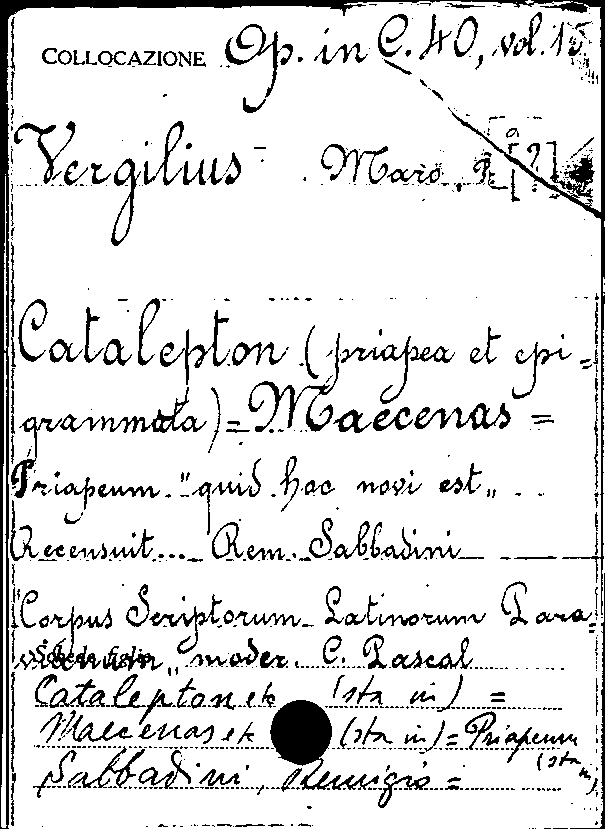 COLLOCAZIONE Op. in C. 40, vol. 15
Vergilius Maro, P. [?]
Catalepton (priapea et epi=
grammata) = Maecenas =
Priapeum "quid hoc novi est"
Recensuit... Rem. Sabbadini
"Corpus Scriptorum Latinorum Para=
vianum" moder. C. Pascal
Catalepton etc (sta in) =
Maecenas etc (sta in) = Priapeum
(sta in)
Sabbadini, Remigio =